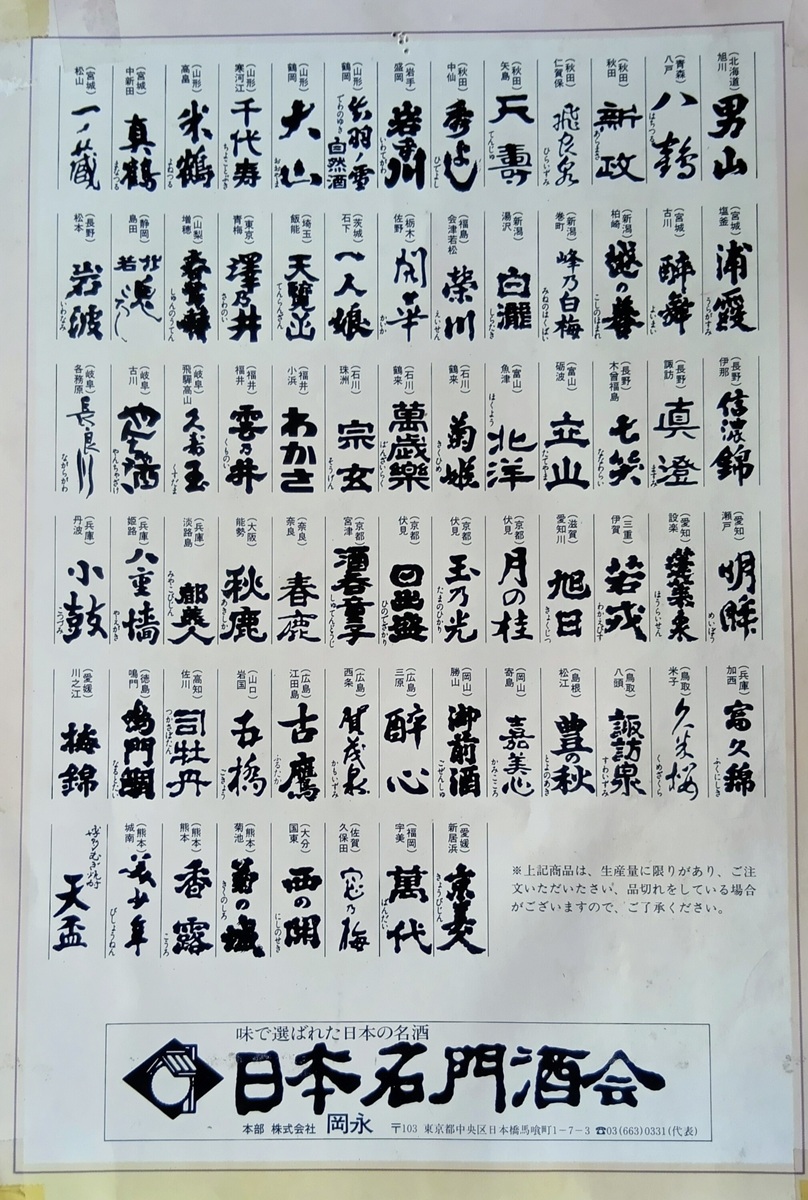 (北海道)旭川 男山
(青森)八戸 八鶴 はちつる
(秋田)秋田 新政 あらまさ
(秋田)仁賀保 飛良泉 ひらいずみ
(秋田)矢島 天壽 てんじゅ
(秋田)中仙 秀よし ひでよし
(岩手)盛岡 岩手川 いわてがわ
(山形)鶴岡 出羽ノ雪 自然酒 でわのゆき
(山形)鶴岡 大山 おおやま
(山形)寒河江 千代寿 ちよことぶき
(山形)高畠 米鶴 よねつる
(宮城)中新田 真鶴 まなつる
(宮城)松山 一ノ蔵
(宮城)塩釜 浦霞 うらがすみ
(宮城)古川 酔舞 よいまい
(新潟)柏崎 越の誉 こしのほまれ
(新潟)巻町 峰乃白梅 みねのはくばい
(新潟)湯沢 白瀧 しらたき
(福島)会津若松 榮川 えいせん
(栃木)佐野 開華 かいか
(茨城)石下 一人娘
(埼玉)飯能 天覧山 てんらんざん
(東京)青梅 澤乃井 さわのい
(山梨)増穂 春鶯囀 しゅんのうてん
(静岡)島田 若
(長野)松本 岩波 いわなみ
(長野)伊那 信濃錦
(長野)諏訪 真澄 ますみ
(長野)木曾福島 七笑 ななわらい
(富山)砺波 立山 たてやま
(富山)魚津 北洋 ほくよう
(石川)鶴来 菊姫 きくひめ
(石川)鶴来 萬歳樂 ばんざいらく
(石川)珠洲 宗玄 そうげん
(福井)小浜 わかさ
(福井)福井 雲乃井 くものい
(岐阜)飛騨高山 久寿玉 くすだま
(岐阜)古川 やんちゃ酒 やんちゃざけ
(岐阜)各務原 長良川 ながらがわ
(愛知)瀬戸 明眸 めいぼう
(愛知)設楽 蓬莱泉 ほうらいせん
(三重)伊賀 若戎 わかえびす
(滋賀)愛知川 旭日 きょくじつ
(京都)伏見 月の桂
(京都)伏見 玉乃光 たまのひかり
(京都)伏見 日出盛 ひのでざかり
(京都)宮津 酒呑童子 しゅてんどうじ
(奈良)奈良 春鹿
(大阪)能勢 秋鹿 あきしか
(兵庫)淡路島 都美人 みやこびじん
(兵庫)姫路 八重墻 やえがき
(兵庫)丹波 小鼓 こつづみ
(兵庫)加西 富久錦 ふくにしき
(鳥取)米子 久米桜 くめざくら
(鳥取)八頭 諏訪泉 すわいずみ
(島根)松江 豊の秋 とよのあき
(岡山)寄島 嘉美心 かみこころ
(岡山)勝山 御前酒 ごぜんしゅ
(広島)三原 酔心
(広島)西条 賀茂泉 かもいずみ
(広島)江田島 古鷹 ふるたか
(山口)岩国 五橋 ごきょう
(高知)佐川 司牡丹 つかさぼたん
(徳島)鳴門 鳴門鯛 なるとたい
(愛媛)川之江 梅錦
(愛媛)新居浜 京美人 きょうびじん
(福岡)宇美 萬代 ばんだい
(佐賀)久保田 窓乃梅
(大分)国東 西の関 にしのせき
(熊本)菊池 菊の城 きくのしろ
(熊本)熊本 香露 こうろ
(熊本)城南 美少年 びしょうねん
博多むぎ焼酎 天盃
※上記商品は、生産量に限りがあり、ご注
文いただいたさい、品切れをしている場合
がございますので、ご了承ください。
味で選ばれた日本の名酒
日本名門酒会
本部 株式会社 岡永 〒103 東京都中央区日本橋馬喰町1-7-3 ☎03(663)0331(代表)